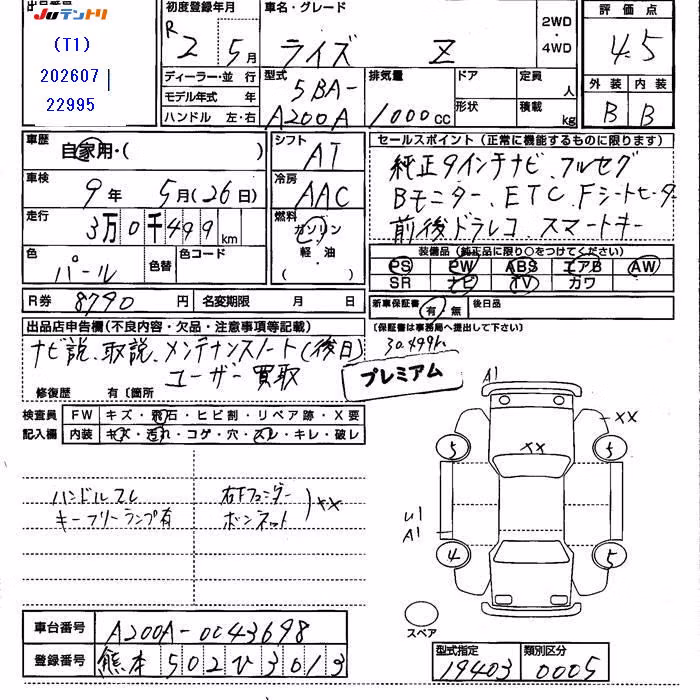 出品番号
JUテントリ
(T1)
202607
22995
初度登録年月
R2年5月
車名・グレード
ライズ Z
2WD
・
4WD
評価点
4.5
外装 内装
B B
ディーラー・並行
モデル年式 年
ハンドル 左・右
型式
5BA-
A200A
排気量
1000cc
ドア
形状
定員 人
積載 kg
車歴
自家用・( )
車検
9年5月(26日)
走行
3万0千499km
色
パール
色替
色コード
R券 8790円
名変期限 月 日
シフト
AT
冷房
AAC
燃料
ガソリン
軽油
( ・ )
セールスポイント(正常に機能するものに限ります)
純正9インチナビ、フルセグ
Bモニター、ETC、Fシートヒーター
前後ドラレコ、スマートキー
装備品(純正品に限り○をつけてください)
PS PW ABS エアB AW
SR ナビ TV カワ
新車保証書 有・無 後日品
(保証書は事務局へ提出して下さい)
30.499km
出品店申告欄(不良内容・欠品・注意事項等記載)
ナビ説、取説、メンテナンスノート(後日)
ユーザー買取
プレミアム
修復歴 有〔箇所
検査員
記入欄
FW キズ・飛石・ヒビ割・リペア跡・X要
内装 キズ・汚れ・コゲ・穴・スレ・キレ・破レ
ハンドルスレ
キーフリーランプ有
右Fフェンダー
ボンネット
)××
A1
××
××
5
5
U1
A1
4
5
スペア
車台番号 A200A-0043698
登録番号 熊本502ひ3013
型式指定 類別区分
19403 0005